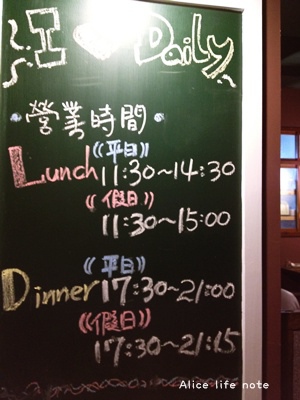 江♥Daily
營業時間
Lunch
((平日))
11:30~14:30
((假日))
11:30~15:00
((平日))
Dinner 17:30~21:00
((假日))
17:30~21:15
Alice life note